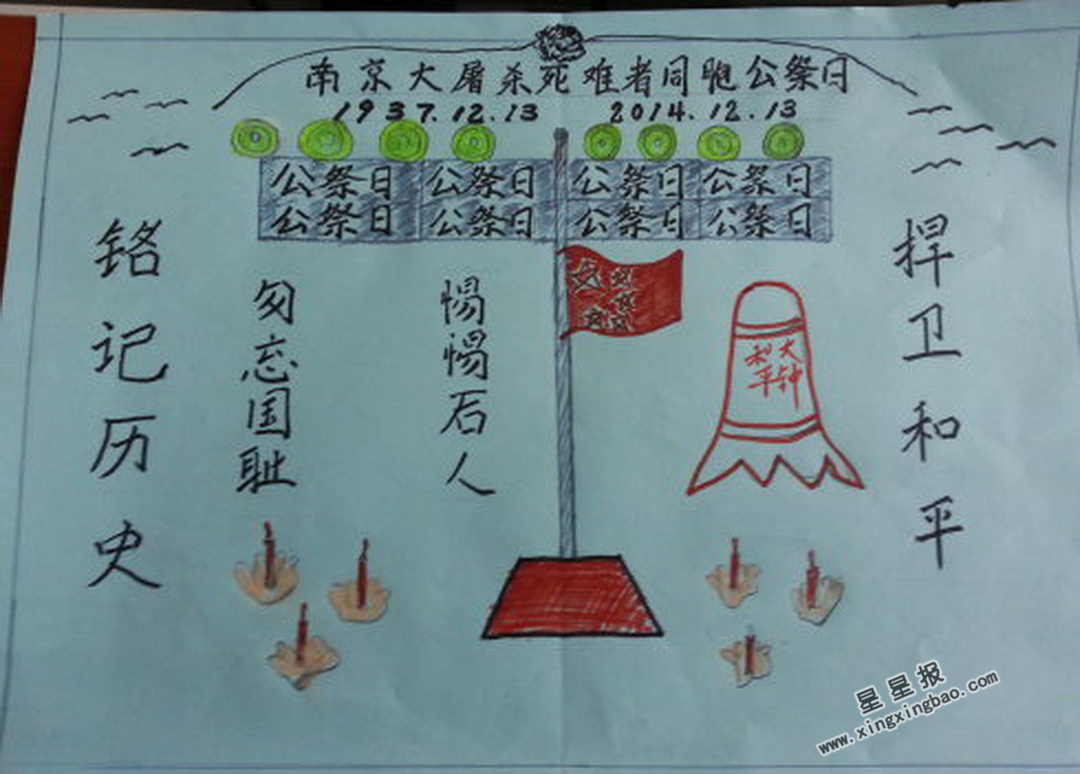 南京大屠杀死难者同胞公祭日
1937.12.13 2014.12.13
公祭日 公祭日 公祭日 公祭日
公祭日 公祭日 公祭日 公祭日
铬记历史
勿忘国耻
惕惕石人
和平
大钟
捍卫和平
星星报
www.xingxingbao.com